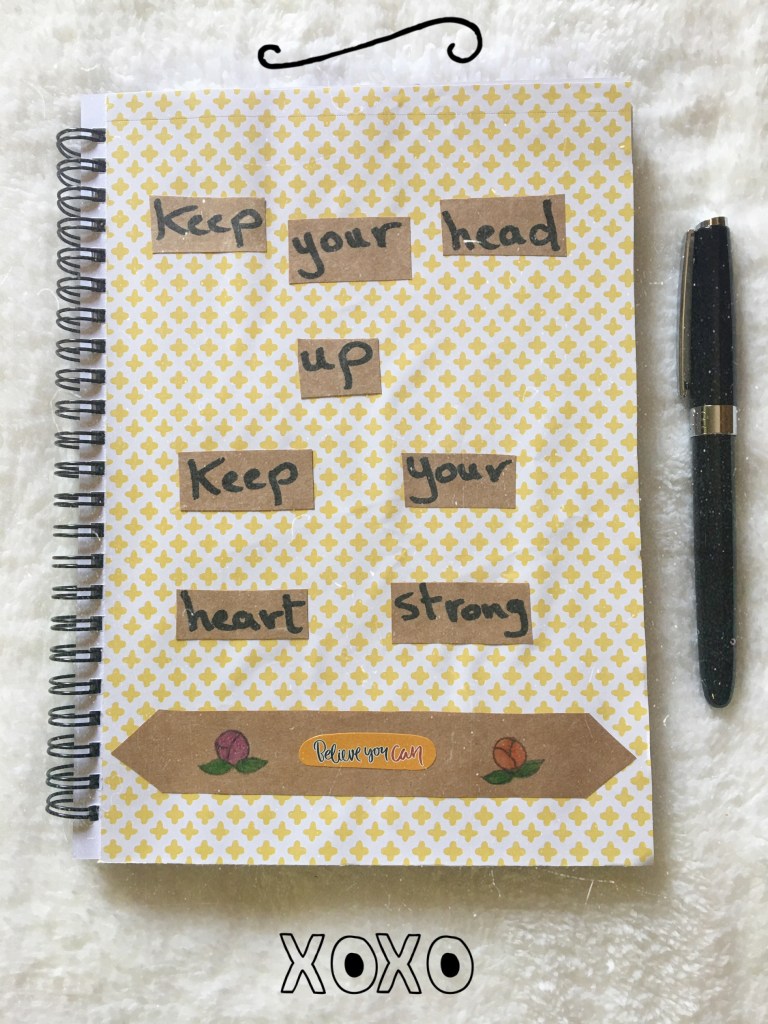 Keep your head
up
Keep your
heart strong
Believe you can
XOXO